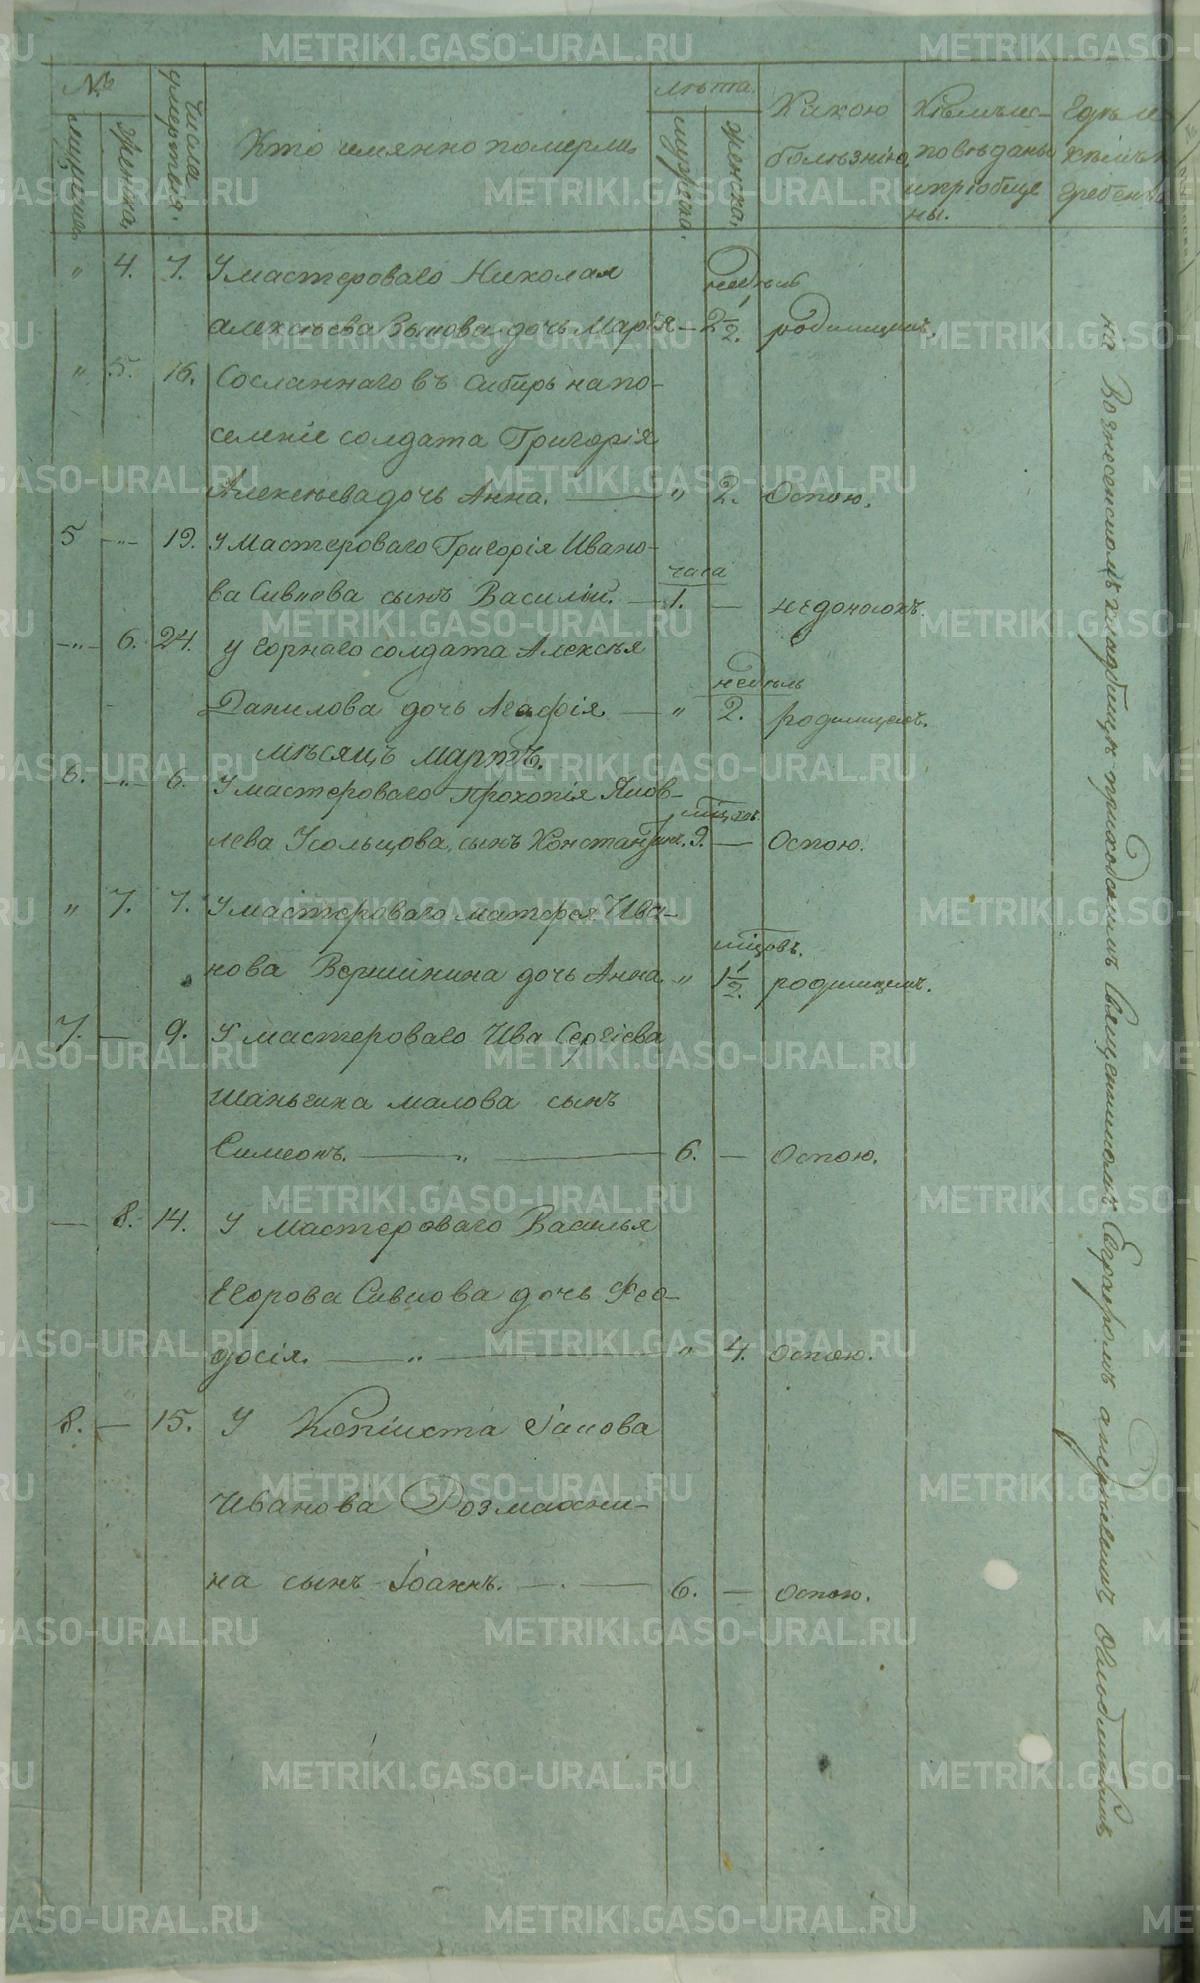 №
мужеска
женска,
Числа умертвія.
Кто имянно померли
лѣта.
мужеска.
женска,
Какою
болѣзнію,
Кѣмъ ис-
повѣданы
и пріобще
ны.
Гдѣ и
кѣмъ
Погребены
" 4. 7. У мастероваго Николая
недѣль
Алексѣева дочь Марія – 2 1/2. родимцемъ.
" 5. 16. Сосланнаго въ Сибирь на по-
селеніе солдата Григорія
Алексѣева дочь Анна. — " 2. Оспою.
5 -"- 19. У Мастероваго Григорія Ивано-
часа
ва Сивкова сынъ Василій. — 1. — недоносокъ.
-"- 6. 24. У горнаго солдата Алексѣя
недѣль
Данилова дочь Агафія — " 2. родимцемъ.
мѣсяцъ мартъ.
6. -"- 6. У мастероваго Прокопія Яков-
мѣцовъ
лева Усольцова, сынъ Константинъ. 9. — Оспою.
" 7. 7. У мастероваго Матфея Ива-
мѣцовъ.
нова Вершинина дочь Анна. " 1 1/2. родимцемъ.
7. — 9. У мастероваго Ива Сергіева
Шаньгина малова сынъ
Симеонъ. — " — 6. — Оспою.
— 8. 14. У Мастероваго Василья
Егорова Сивкова дочь Фео-
досія. — " — " 4. Оспою.
8. — 15. У Копіиста Іакова
Иванова Розмахни-
на сынъ Іоаннъ. — . — 6. — Оспою.
на Вознесенскомъ кладбищѣ приходскимъ Священникомъ
METRIKI.GASO-URAL.RU